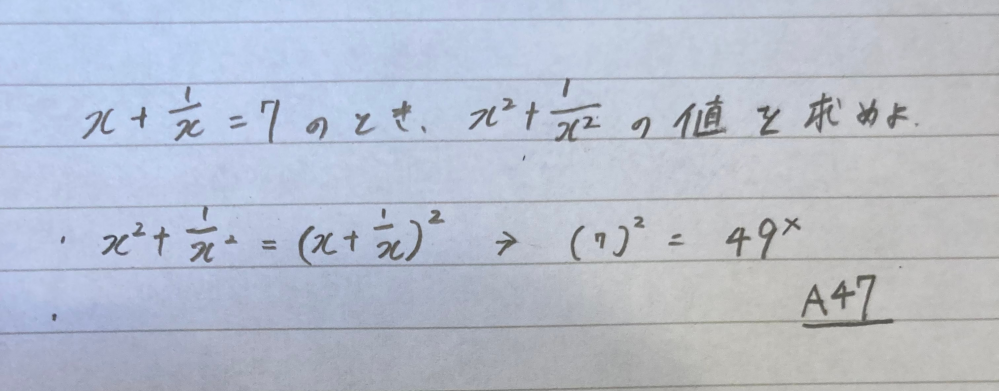 x + 1/x = 7 のとき、 x² + 1/x² の値を求めよ.
・ x² + 1/x² = (x + 1/x)² → (7)² = 49×
A47